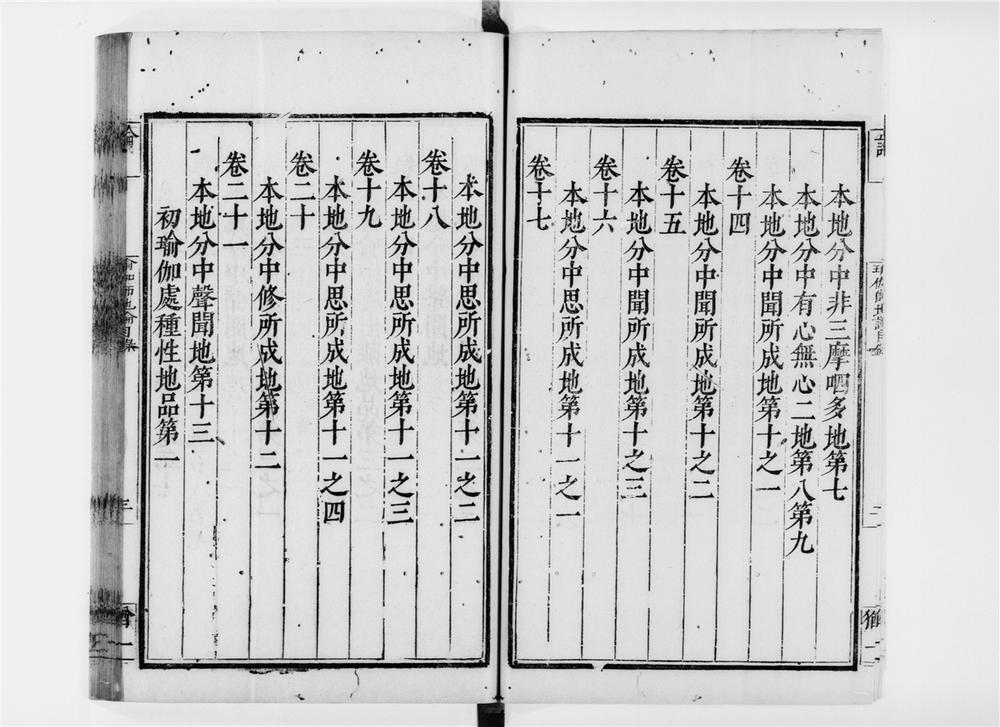 本地分中非三摩呬多地第七
本地分中有心無心二地第八第九
本地分中聞所成地第十之一
卷十四
本地分中聞所成地第十之二
卷十五
本地分中聞所成地第十之三
卷十六
本地分中思所成地第十一之一
卷十七
本地分中思所成地第十一之二
卷十八
本地分中思所成地第十一之三
卷十九
本地分中思所成地第十一之四
卷二十
本地分中修所成地第十二
卷二十一
本地分中聲聞地第十三
初瑜伽處種性地品第一